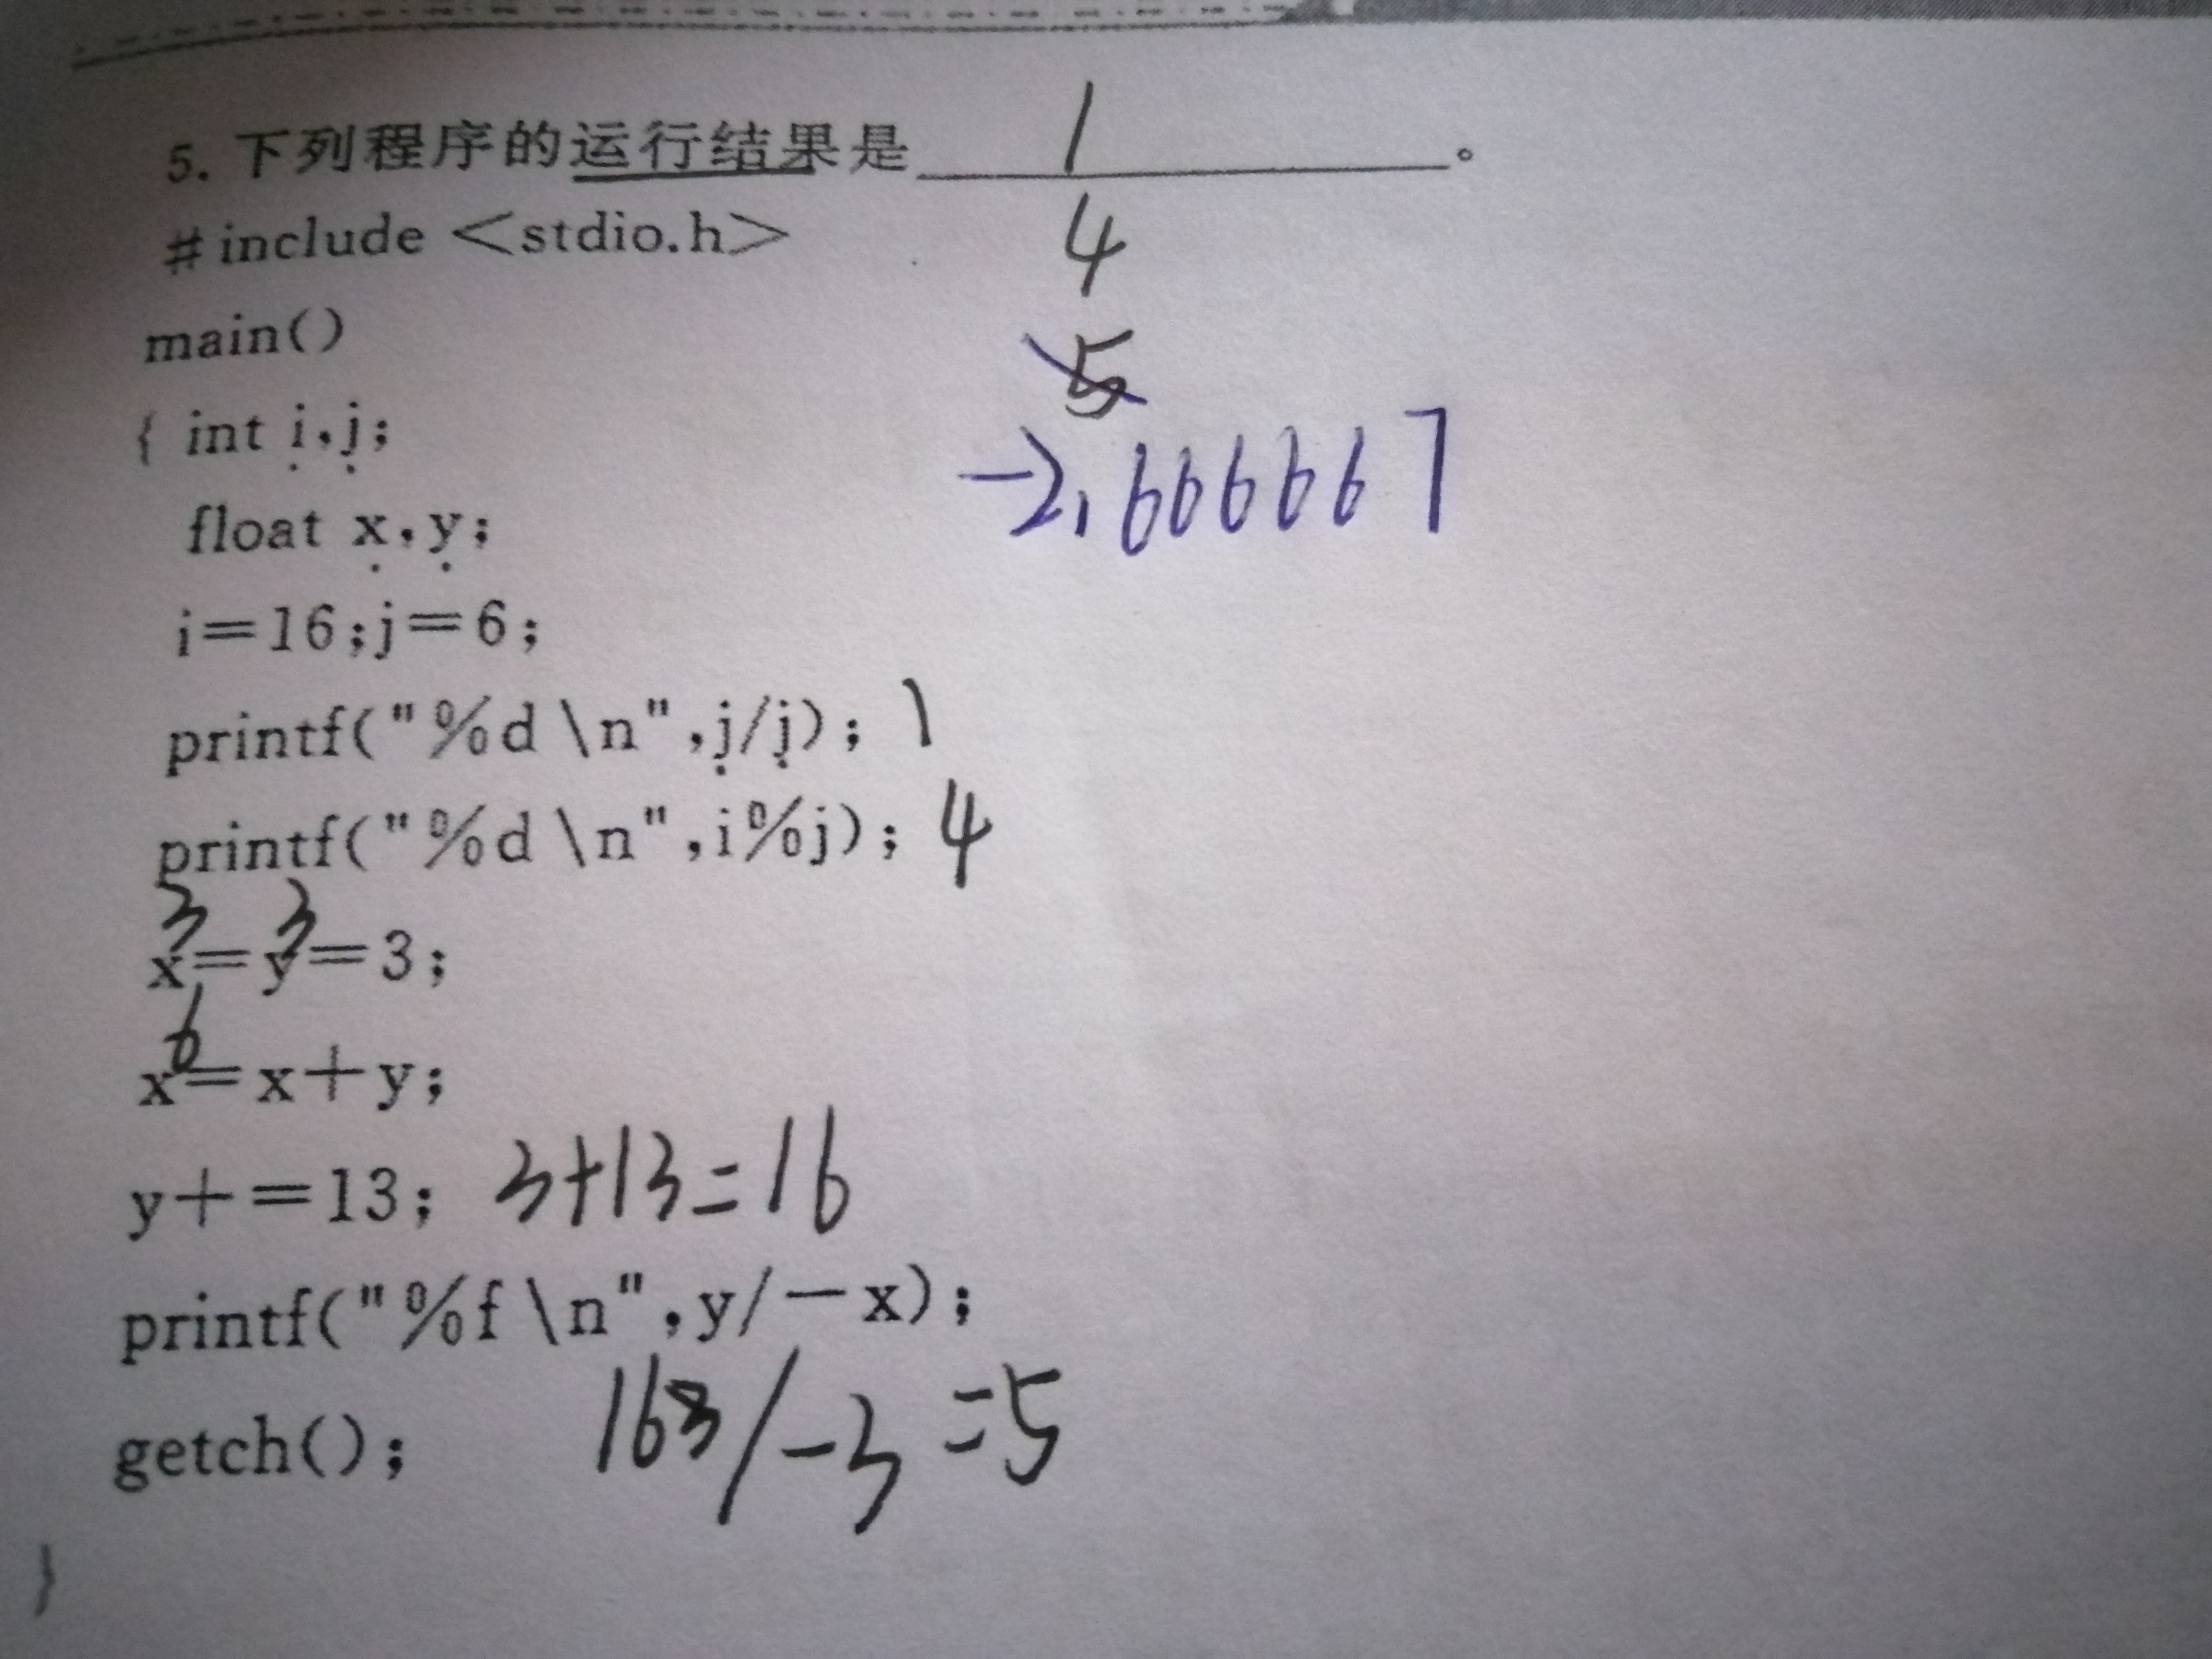 5. 下列程序的运行结果是 1 。
#include <stdio.h> 4
main() 5
{ int i,j; -2.666667
float x,y;
i=16;j=6;
printf("%d\n",j/j); 1
printf("%d\n",i%j); 4
3 3
x=y=3;
6
x=x+y;
y+=13; 3+13=16
printf("%f\n",y/-x);
getch(); 163/-3=5
}